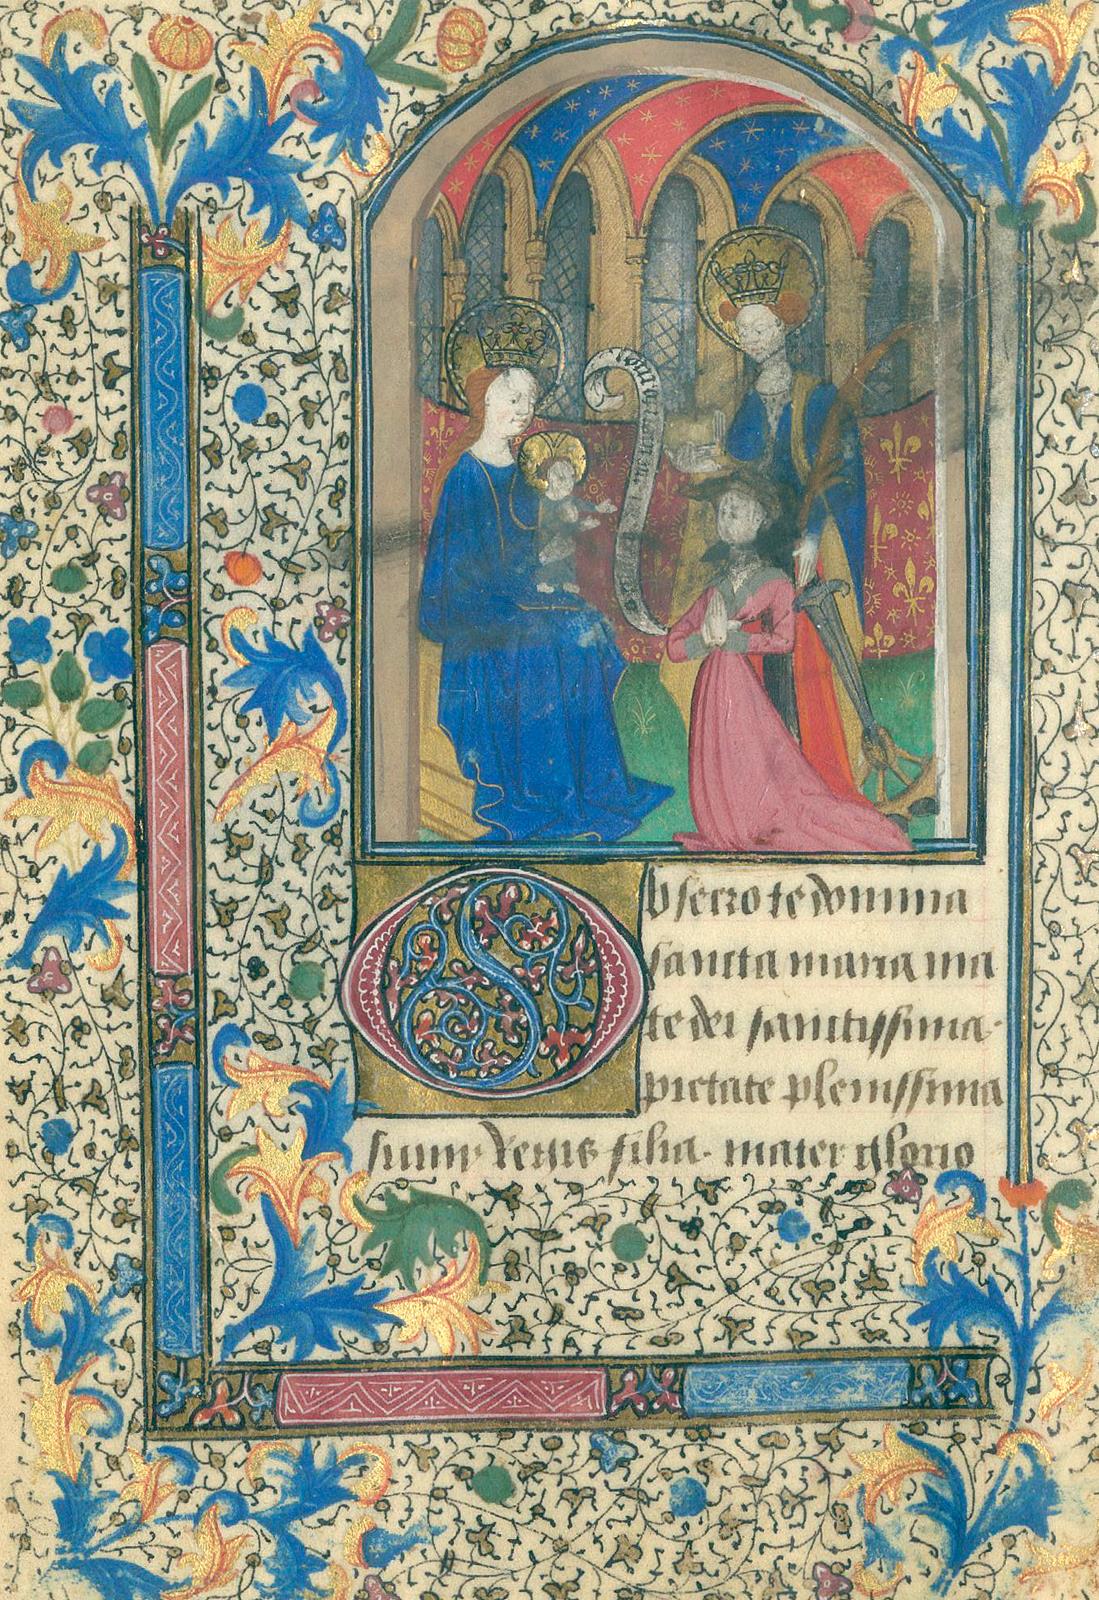 Obsecro te domina
sancta maria ma
te dei sanctissima·
pietate plenissima
summi regis filia· mater glorio